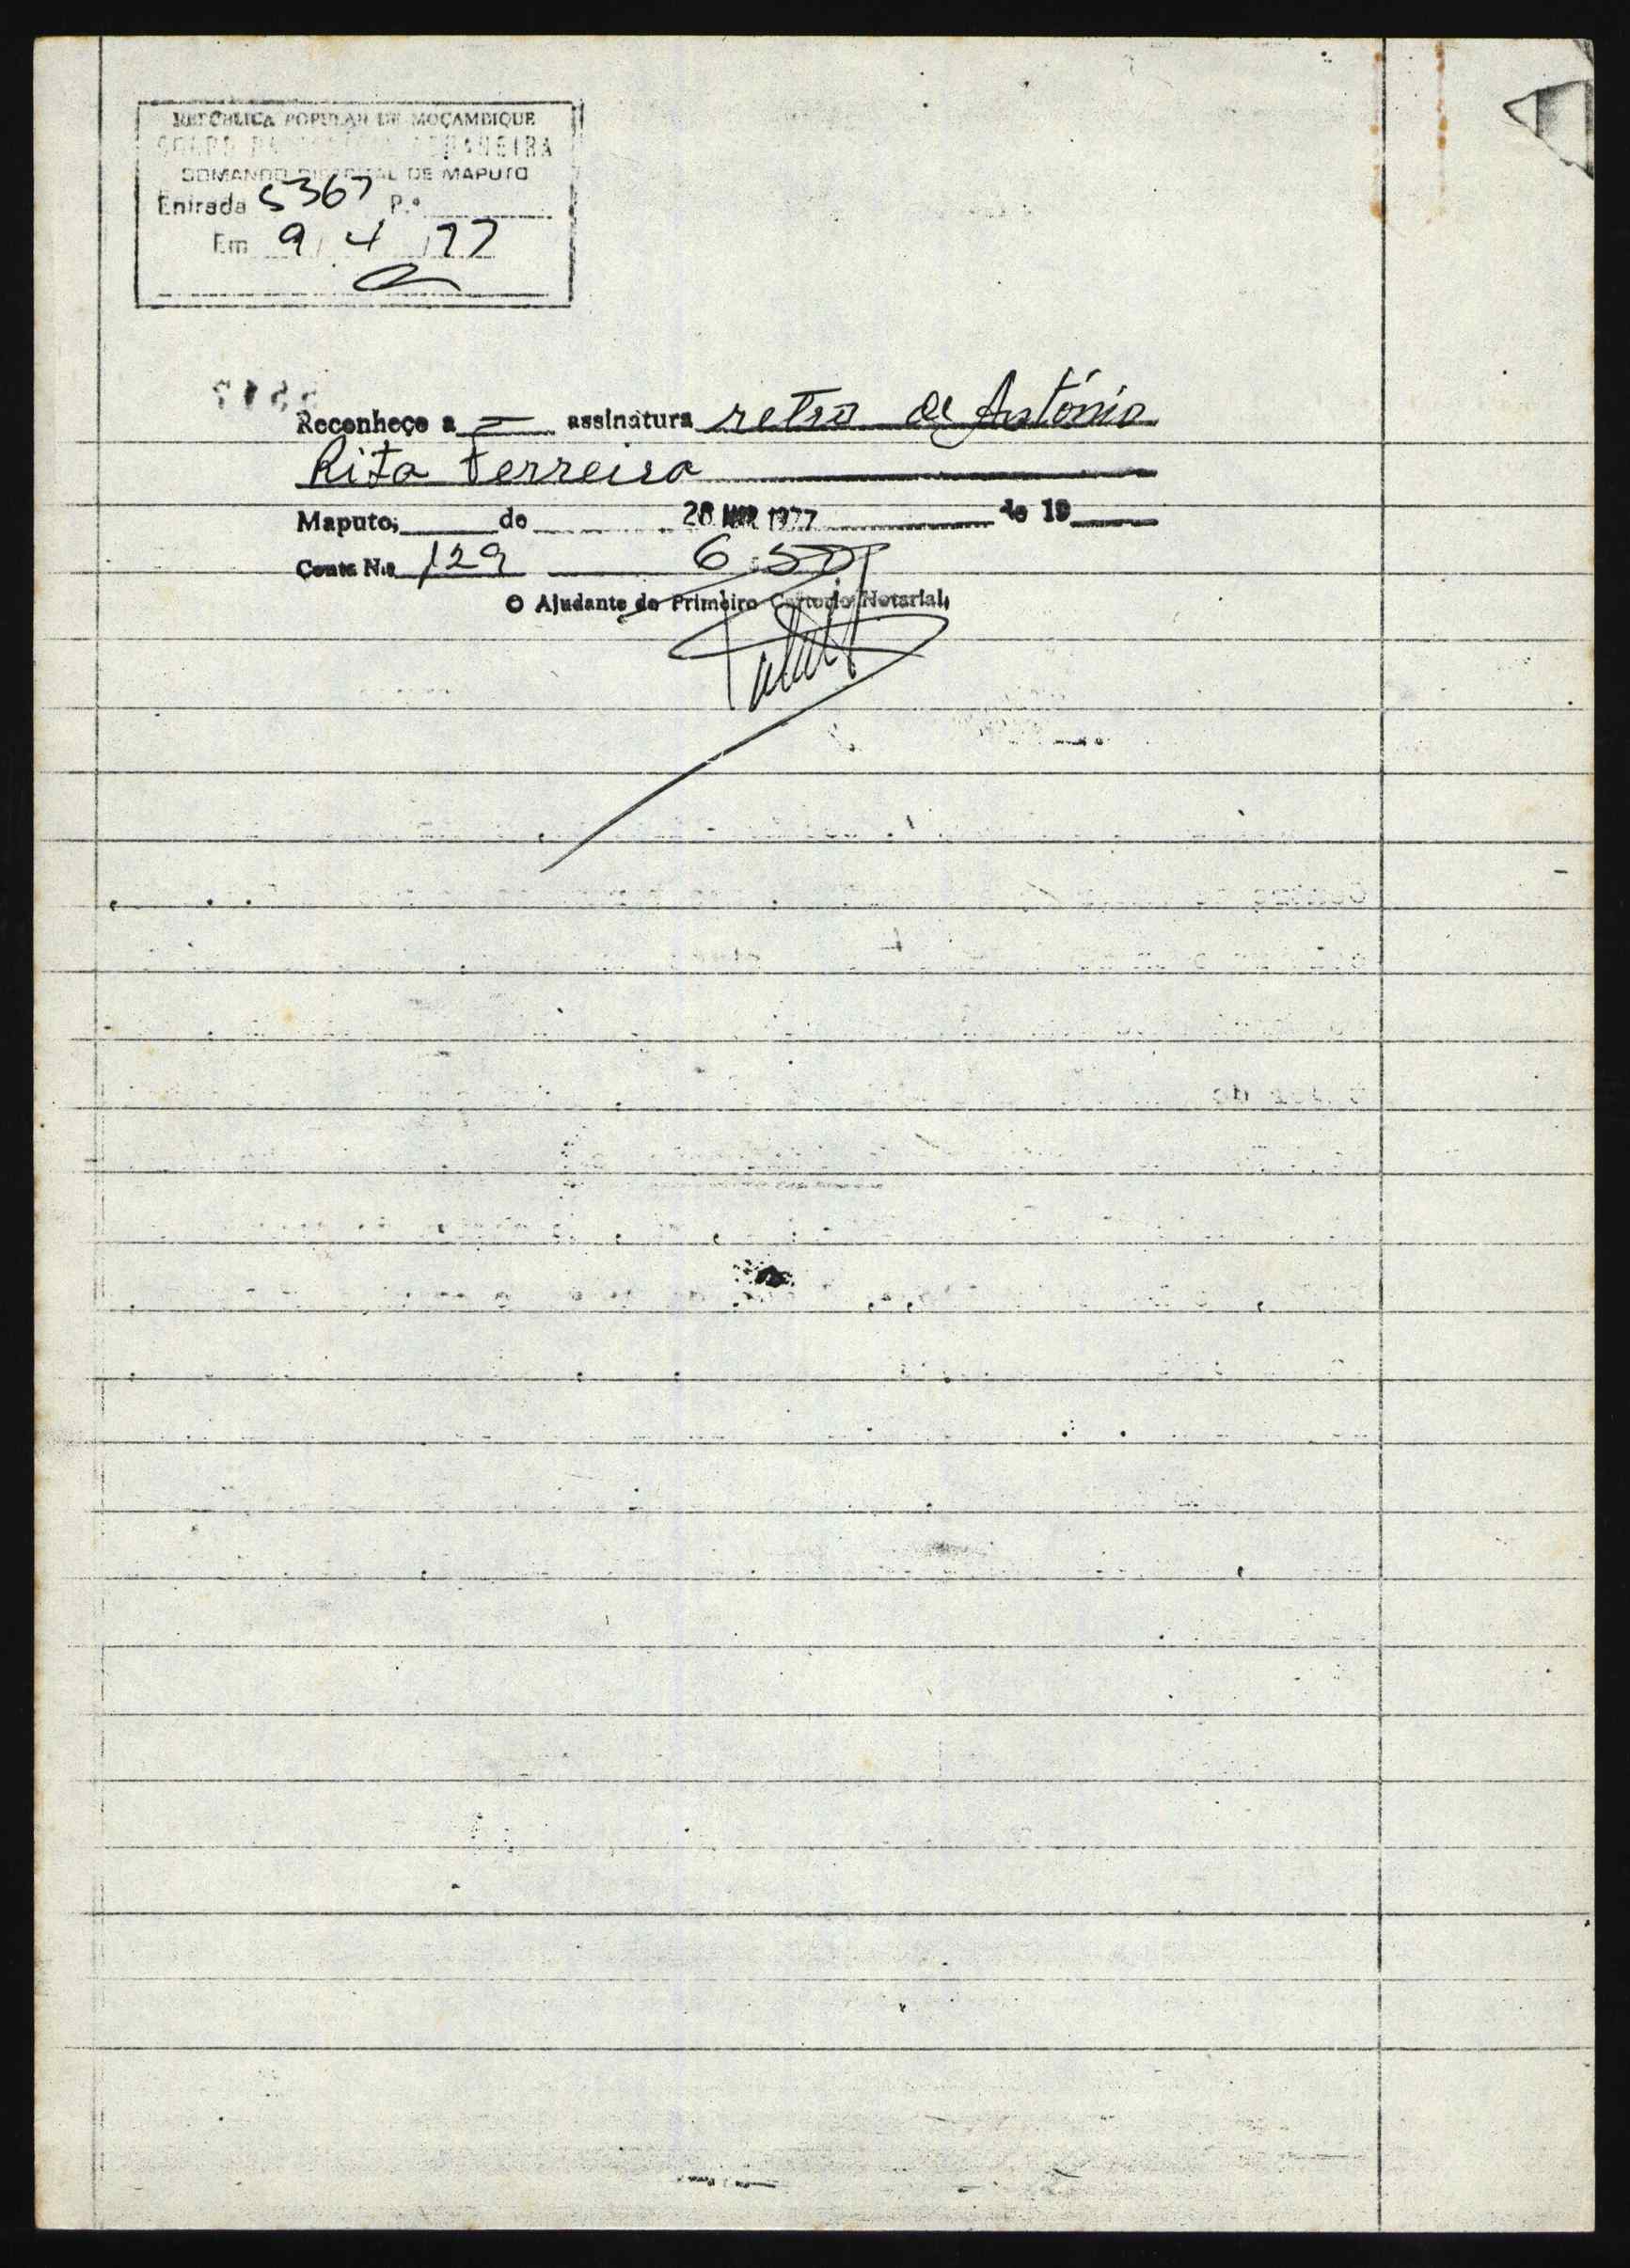 REPÚBLICA POPULAR DE MOÇAMBIQUE
COMANDO DISTRITAL DE MAPUTO
Entrada 5367 P.º
Em 9/4/77
Reconheço a assinatura retro de António
Rita Ferreira
Maputo, de 28 MAR 1977 de 19
Conta N.º 129 6.50
O Ajudante do Primeiro Cartorio Notarial,